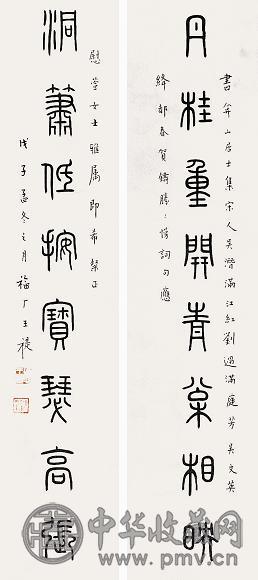 丹桂重開青桌相映
書弁山居士集宋人吳潛滿江紅劉過滿庭芳吳文英
絳都春賀鑄勝勝慢詞句應
慰萱女士雅屬即希粲正
洞簫低按寶瑟高張
戊子孟冬之月福厂王禔
中华收藏网
www.pmv.cn